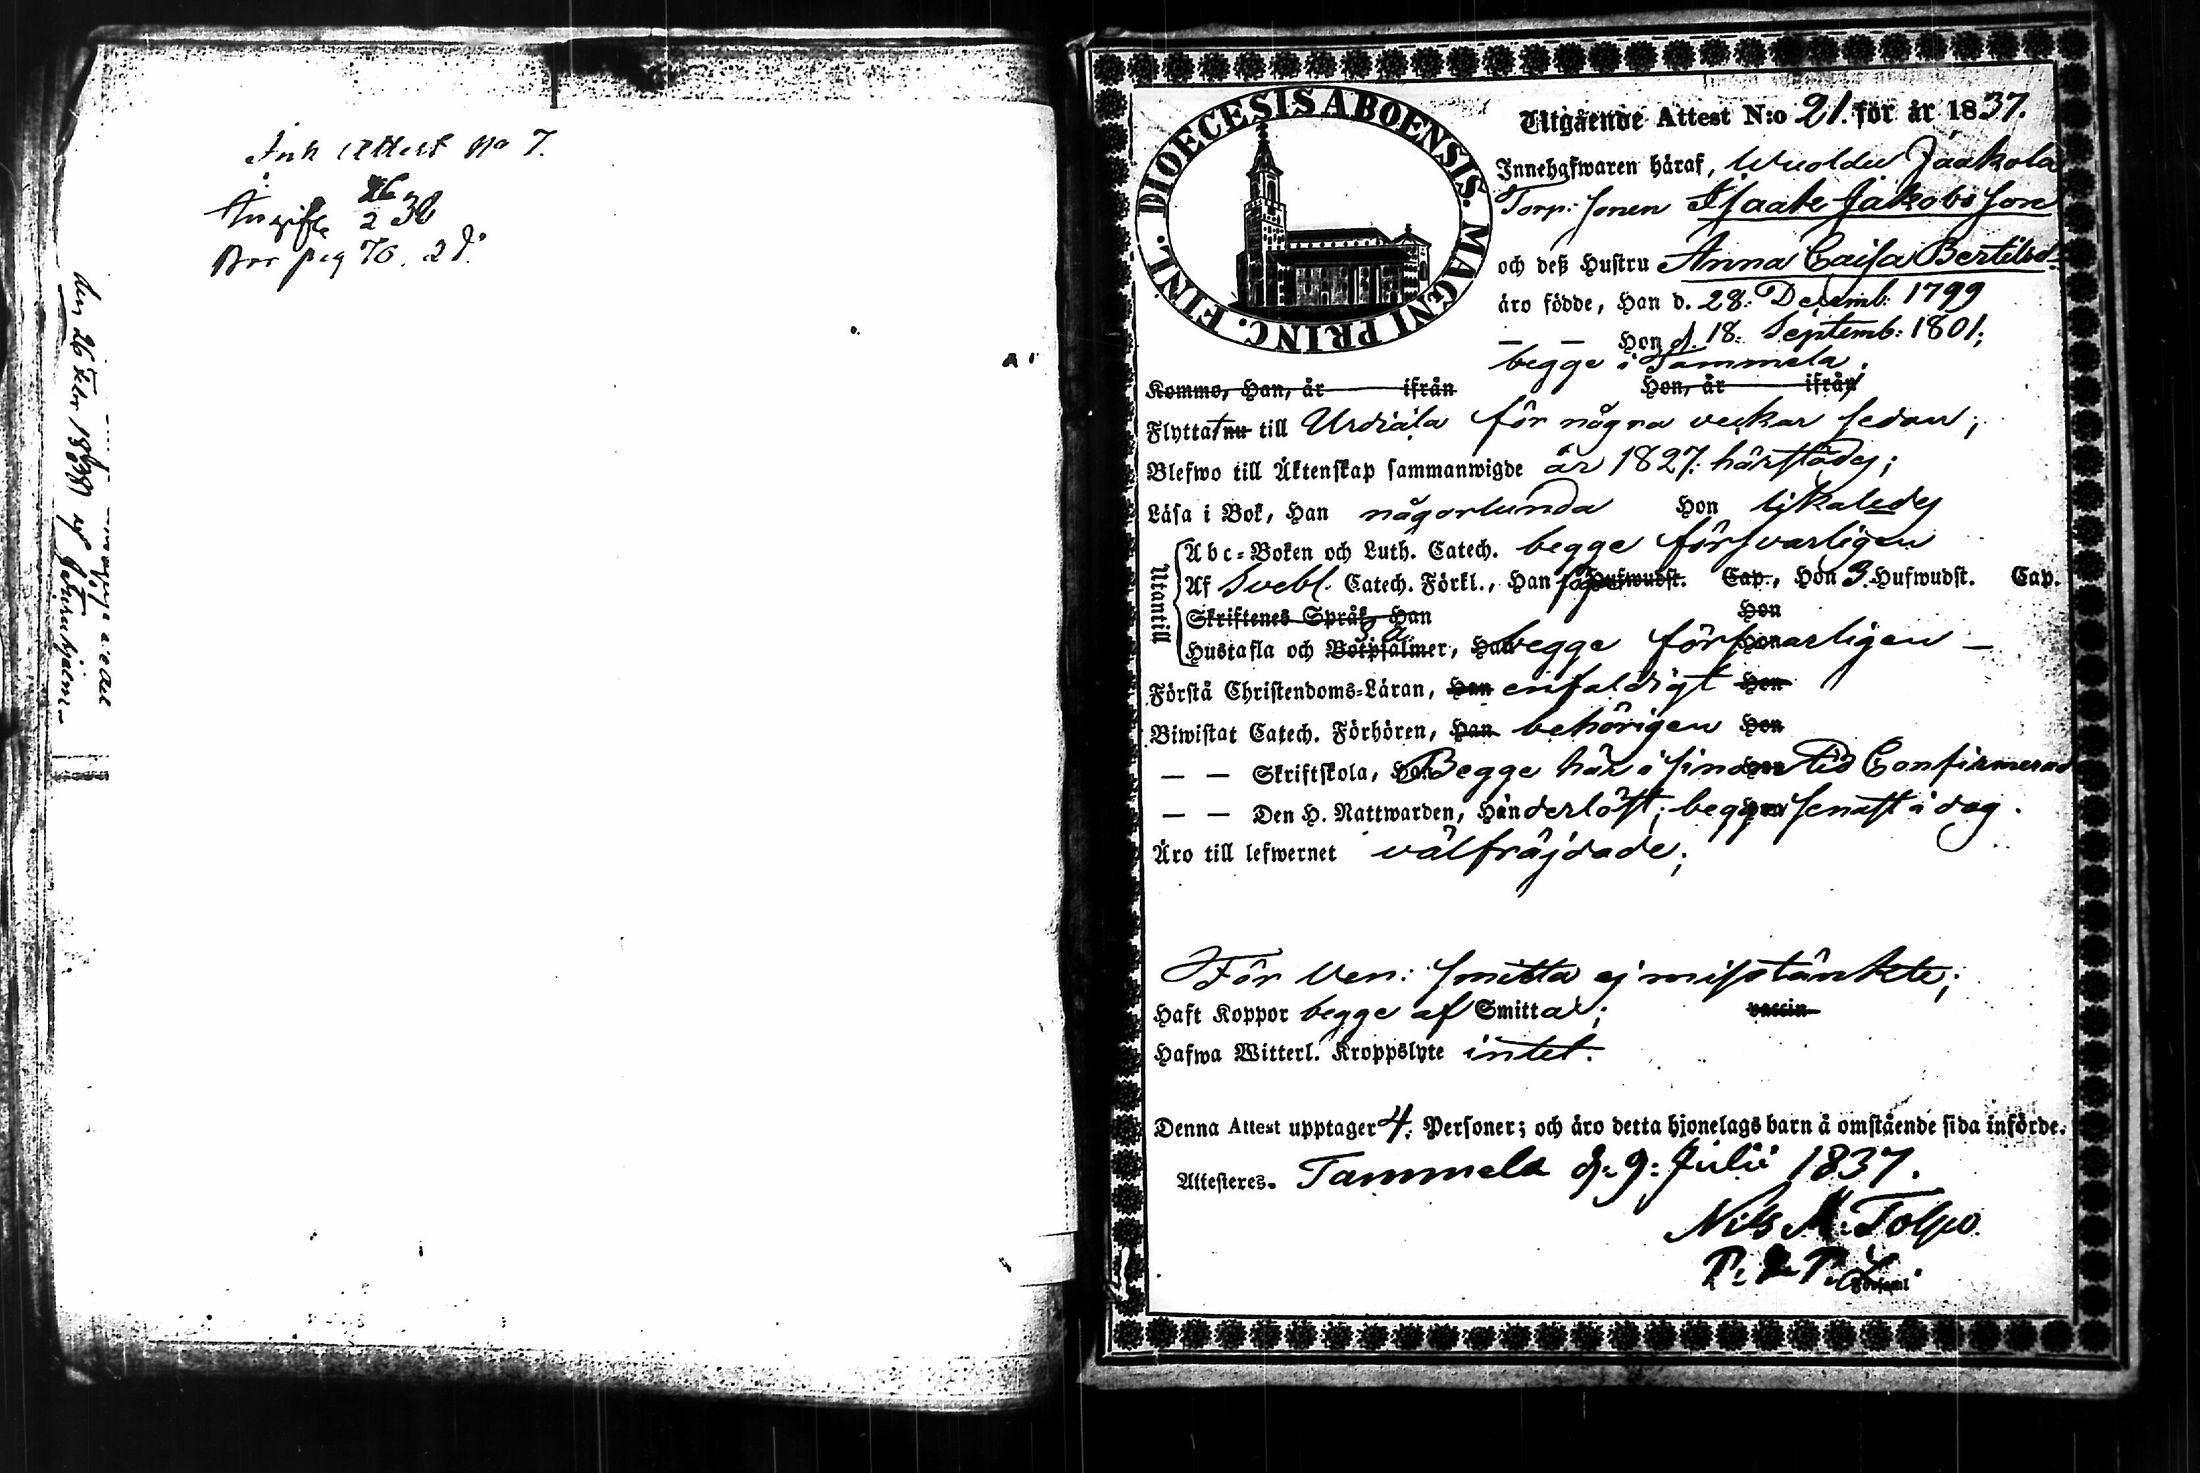 Ink Attest No 7.
Angifte 2 38
Bor pag 76. 2 d:
den 26 Febr 1838 af
DIOECESIS ABOENSIS. MAGNI PRINC. FINL.
Utgående Attest N:o 21. för år 1837.
Innehafwaren häraf, Wuolde Jaakola
Torp: sonen Isaak Jakobsson
och deß Hustru Anna Caisa Bertilsd:
äro födde, Han d. 28: Decemb: 1799
— — Hon d. 18: Septemb: 1801;
begge i Tammela;
Kommo, Han, år ifrån Hon, år ifrån
Flyttat nu till Urdiala för några veckor sedan;
Blefwo till Äktenskap sammanwigde år 1827. härstädes;
Läsa i Bok, Han någorlunda Hon likaledes
Utantill
Abc-Boken och Luth. Catech. begge försvarligen
Af Svebl. Catech. Förkl., Han Hufwudst. Cap., Hon 3. Hufwudst. Cap.
Skriftenes Språk, Han Hon
Hustafla och Botpsalmer, Han begge försvarligen Hon —
Förstå Christendoms-Läran, Han enfaldigt Hon
Biwistat Catech. Förhören, Han behörigen Hon
— — Skriftskola, Han Begge här i sinom tid Confirmerad
— — Den H. Nattwarden, Han oderlöst; begge senast i dag.
Äro till lefwernet välfräjdade;
För Ven: smitta ej misstänkte;
Haft Koppor begge af Smitta; vaccin
Hafwa Witterl. Kroppslyte intet.
Denna Attest upptager 4. Personer; och äro detta hjonelags barn å omstående sida införde.
Attesteres. Tammela d. 9: Julii 1837.
Nils M. Tolpo.